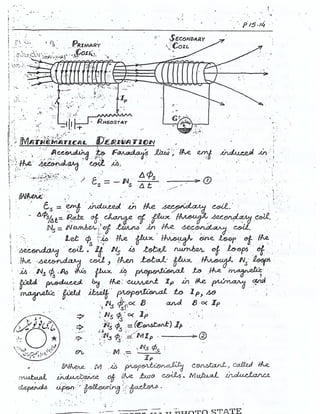 P 15-14
SECONDARY
COIL
PRIMARY
COIL
Ip
RHEOSTAT
G
MATHEMATICAL DERIVATION
According to Faraday's law, the emf induced in
the secondary coil is.
Ɛs = - Ns Δφs/Δt → ①
Where
Ɛs = emf induced in the secondary coil.
Δφs/Δt = Rate of change of flux through secondary coil
Ns = Number of turns in the secondary coil.
Let φs is the flux through one loop of the
secondary coil. If Ns is total number of loops of
the secondary coil, then total flux through Ns loops
is Nsφs. As this flux is proportional to the magnetic
field produced by the current Ip in the primary and
magnetic field itself proportional to Ip, so
Ns φs ∝ B and B ∝ Ip
⇒ Ns φs ∝ Ip
⇒ Ns φs = (Constant) Ip
⇒ Ns φs = M Ip → ②
or M = Ns φs / Ip
Where M is proportionality constant, called the
mutual inductance of the two coils. Mutual inductance
depends upon following factors.
PHOTO STATE